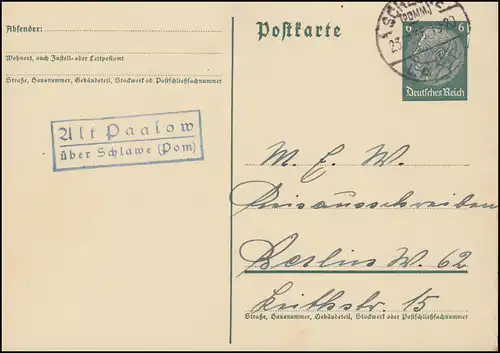 Absender:
Wohnort, auch Zustell- oder Leitpostamt
Straße, Hausnummer, Gebäudeteil, Stockwerk od. Postschließfachnummer
Postkarte
SCHLAWE
(POMM)
23
6 6
Deutsches Reich
Alt Paalow
über Schlawe (Pom)
M. E. W.
Preisausschreiben
Berlin W. 62
Keithstr. 15
Straße, Hausnummer, Gebäudeteil, Stockwerk oder Postschließfachnummer